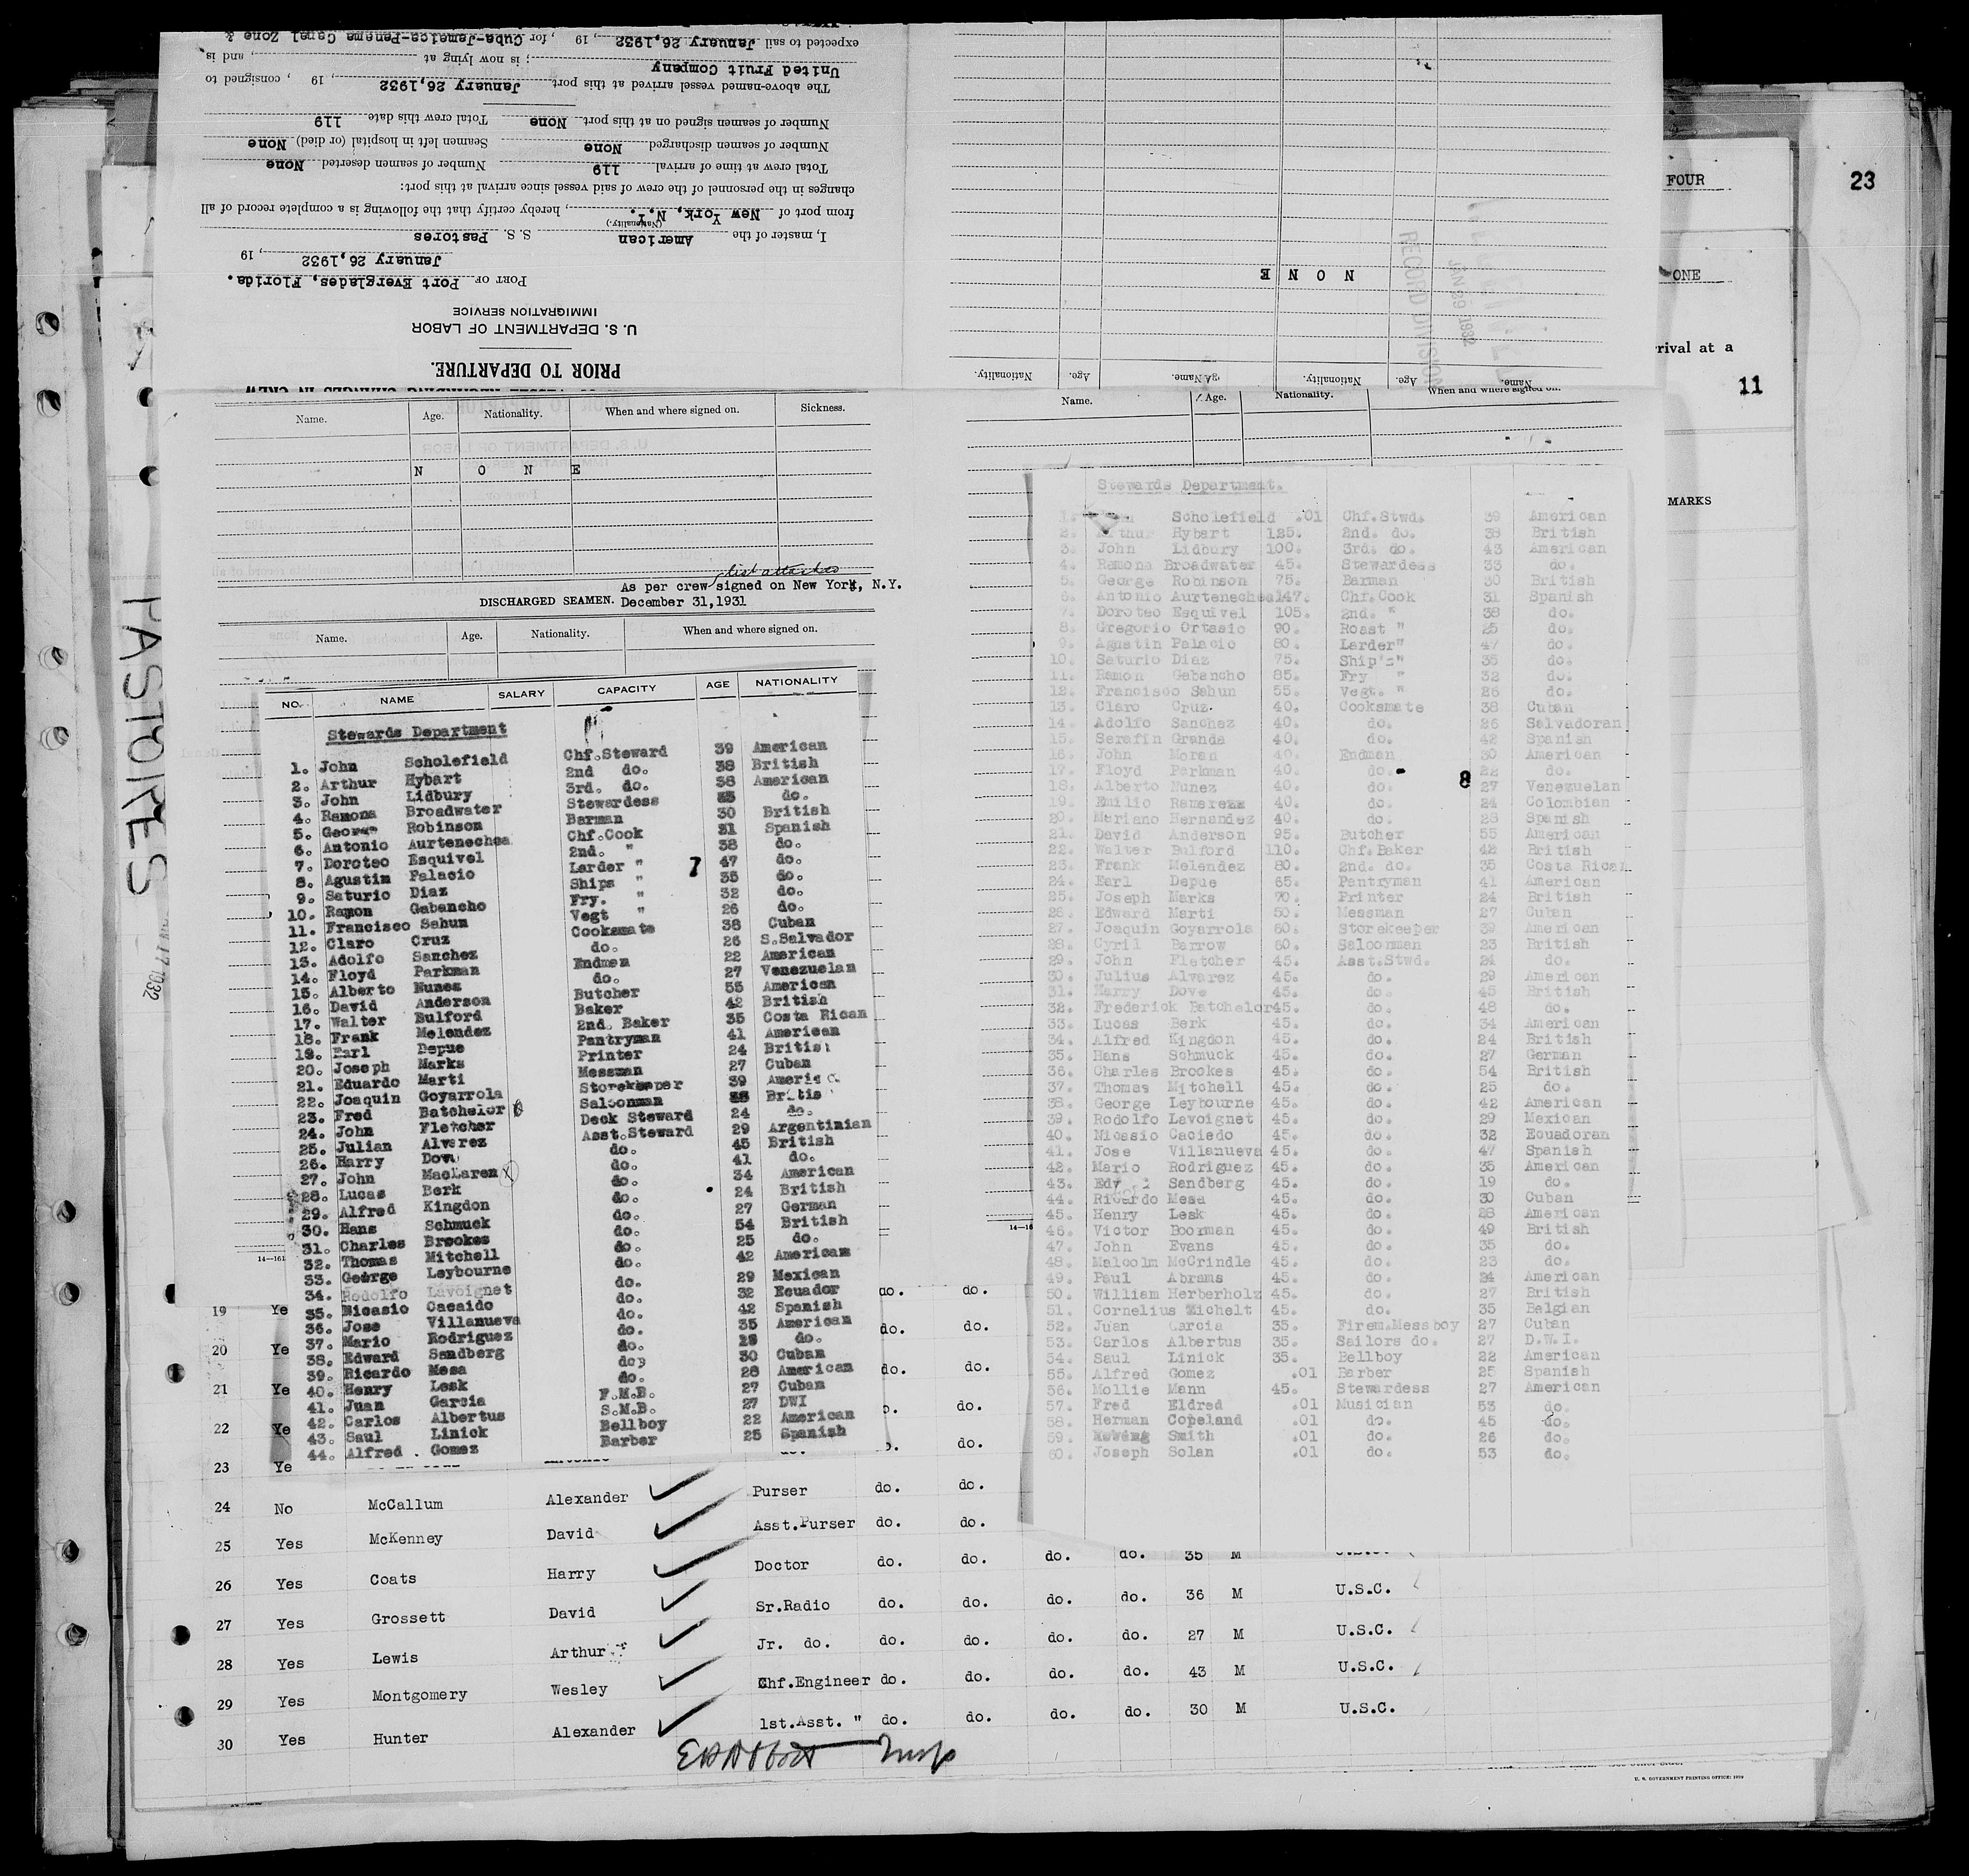 expected to sail January 26,1932, 19 , for Cuba-Jamaica-Panama Canal Zone &
United Fruit Company ; is now lying at , and is
The above-named vessel arrived at this port January 26,1932, 19 , consigned to
Number of seamen signed on at this port None Total crew this date 119
Number of seamen discharged None Seamen left in hospital (or died) None
Total crew at time of arrival 119 Number of seamen deserted None
changes in the personnel of the crew of said vessel since arrival at this port:
from port of New York, N.Y. , hereby certify that the following is a complete record of all
(Nationality.)
I, master of the American S. S. Pastores
January 26,1932 , 19
PORT OF Port Everglades, Florida.
IMMIGRATION SERVICE
U. S. DEPARTMENT OF LABOR
PRIOR TO DEPARTURE.
N O N E
RECORD DIVISION
JAN 29 1932
Name. Age. Nationality. Name. Age. Nationality.
FOUR
23
ONE
rrival at a
11
MARKS
PASTORES
17 1932
Name. Age. Nationality. When and where signed on. Sickness.
N O N E
list attached
As per crew signed on New York, N.Y.
DISCHARGED SEAMEN. December 31,1931
Name. Age. Nationality. When and where signed on.
NO. NAME SALARY CAPACITY AGE NATIONALITY
Stewards Department
1. John Scholefield Chf.Steward 39 American
2. Arthur Hybart 2nd do. 38 British
3. John Lidbury 3rd. do. 38 American
4. Ramona Broadwater Stewardess do.
5. George Robinson Barman 30 British
6. Antonio Aurtenechea Chf.Cook 31 Spanish
7. Doroteo Esquivel 2nd. " 38 do.
8. Agustin Palacio Larder " 7 47 do.
9. Saturio Diaz Ships " 35 do.
10. Ramon Gabancho Fry. " 32 do.
11. Francisco Sahun Vegt " 26 do.
12. Claro Cruz Cooksmate 38 Cuban
13. Adolfo Sanchez do. 26 S.Salvador
14. Floyd Parkman Endmen 22 American
15. Alberto Nunez do. 27 Venezuelan
16. David Anderson Butcher 55 American
17. Walter Bulford Baker 42 British
18. Frank Melendez 2nd. Baker 35 Costa Rican
19. Earl Depue Pantryman 41 American
20. Joseph Marks Printer 24 British
21. Eduardo Marti Messman 27 Cuban
22. Joaquin Goyarrola Storekeeper 39 Americ
23. Fred Batchelor Saloonman Britis
24. John Fletcher Deck Steward 24 do.
25. Julian Alvarez Asst.Steward 29 Argentinian
26. Harry Dove do. 45 British
27. John MacLaren X do. 41 do.
28. Lucas Berk do. 34 American
29. Alfred Kingdon do. 24 British
30. Hans Schmuck do. 27 German
31. Charles Brookes do. 54 British
32. Thomas Mitchell do. 25 do.
33. George Leybourne do. 42 American
34. Rodolfo Lavoignet do. 29 Mexican
35. Nicasio Cacaido do. 32 Ecuador
36. Jose Villanueva do. 42 Spanish
37. Mario Rodriguez do. 35 American
38. Edward Sandberg do. do.
39. Ricardo Mesa do 30 Cuban
40. Henry Lesk do. 28 American
41. Juan Garcia F.M.B. 27 Cuban
42. Carlos Albertus S.M.B. 27 DWI
43. Saul Linick Bellboy 22 American
44. Alfred Gomez Barber 25 Spanish
14—161
Name. Age. Nationality. When and where signed on.
Stewards Department.
1. Scholefield .01 Chf.Stwd. 39 American
2. Arthur Hybart 125. 2nd. do. 38 British
3. John Lidbury 100. 3rd. do. 43 American
4. Ramona Broadwater 45. Stewardess 33 do.
5. George Robinson 75. Barman 30 British
6. Antonio Aurtenechea 147. Chf.Cook 31 Spanish
7. Doroteo Esquivel 105. 2nd. " 38 do.
8. Gregorio Ortasio 90. Roast " 25 do.
9. Agustin Palacio 80. Larder" 47 do.
10. Saturio Diaz 75. Ship's" 35 do.
11. Ramon Gabancho 85. Fry " 32 do.
12. Francisco Sahun 55. Vegt. " 26 do.
13. Claro Cruz 40. Cooksmate 38 Cuban
14. Adolfo Sanchez 40. do. 26 Salvadoran
15. Serafin Granda 40. do. 42 Spanish
16. John Moran 40. Endman 30 American
17. Floyd Parkman 40. do. 22 do.
8
18. Alberto Nunez 40. do. 27 Venezuelan
19. Emilio Ramerezz 40. do. 24 Colombian
20. Mariano Hernandez 40. do. 28 Spanish
21. David Anderson 95. Butcher 55 American
22. Walter Bulford 110. Chf.Baker 42 British
23. Frank Melendez 80. 2nd. do. 35 Costa Rican
24. Earl Depue 65. Pantryman 41 American
25. Joseph Marks 70. Printer 24 British
26. Edward Marti 50. Messman 27 Cuban
27. Joaquin Goyarrola 60. Storekeeper 39 American
28. Cyril Barrow 60. Saloonman 23 British
29. John Fletcher 45. Asst.Stwd. 24 do.
30. Julius Alvarez 45. do. 29 American
31. Harry Dove 45. do. 45 British
32. Frederick Batchelor 45. do. 48 do.
33. Lucas Berk 45. do. 34 American
34. Alfred Kingdon 45. do. 24 British
35. Hans Schmuck 45. do. 27 German
36. Charles Brookes 45. do. 54 British
37. Thomas Mitchell 45. do. 25 do.
38. George Leybourne 45. do. 42 American
39. Rodolfo Lavoignet 45. do. 29 Mexican
40. Nicasio Caciedo 45. do. 32 Ecuadoran
41. Jose Villanueva 45. do. 47 Spanish
42. Mario Rodriguez 45. do. 35 American
43. Sandberg 45. do. 19 do.
44. Ricardo Mesa 45. do. 30 Cuban
45. Henry Lesk 45. do. 28 American
46. Victor Boorman 45. do. 49 British
47. John Evans 45. do. 35 do.
48. Malcolm McCrindle 45. do. 23 do.
49. Paul Abrams 45. do. 24 American
50. William Herberholz 45. do. 27 British
51. Cornelius Michelt 45. do. 35 Belgian
52. Juan Garcia 35. Firem.Messboy 27 Cuban
53. Carlos Albertus 35. Sailors do. 27 D.W.I.
54. Saul Linick 35. Bellboy 22 American
55. Alfred Gomez .01 Barber 25 Spanish
56. Mollie Mann 45. Stewardess 27 American
57. Fred Eldred .01 Musician 53 do.
58. Herman Copeland .01 do. 45 do.
59. Smith .01 do. 26 do.
60. Joseph Solan .01 do. 53 do.
14—16
19 Ye do. do.
20 Ye do. do.
21 Ye do. do.
22 Ye do.
23 Ye do.
24 No McCallum Alexander Purser do. do.
25 Yes McKenney David Asst.Purser do. do.
26 Yes Coats Harry Doctor do. do. do. do. 35 M
27 Yes Grossett David Sr.Radio do. do. do. do. 36 M U.S.C.
28 Yes Lewis Arthur Jr. do. do. do. do. do. 27 M U.S.C.
29 Yes Montgomery Wesley Chf.Engineer do. do. do. do. 43 M U.S.C.
30 Yes Hunter Alexander 1st.Asst. " do. do. do. do. 30 M U.S.C.
U. S. GOVERNMENT PRINTING OFFICE: 1929